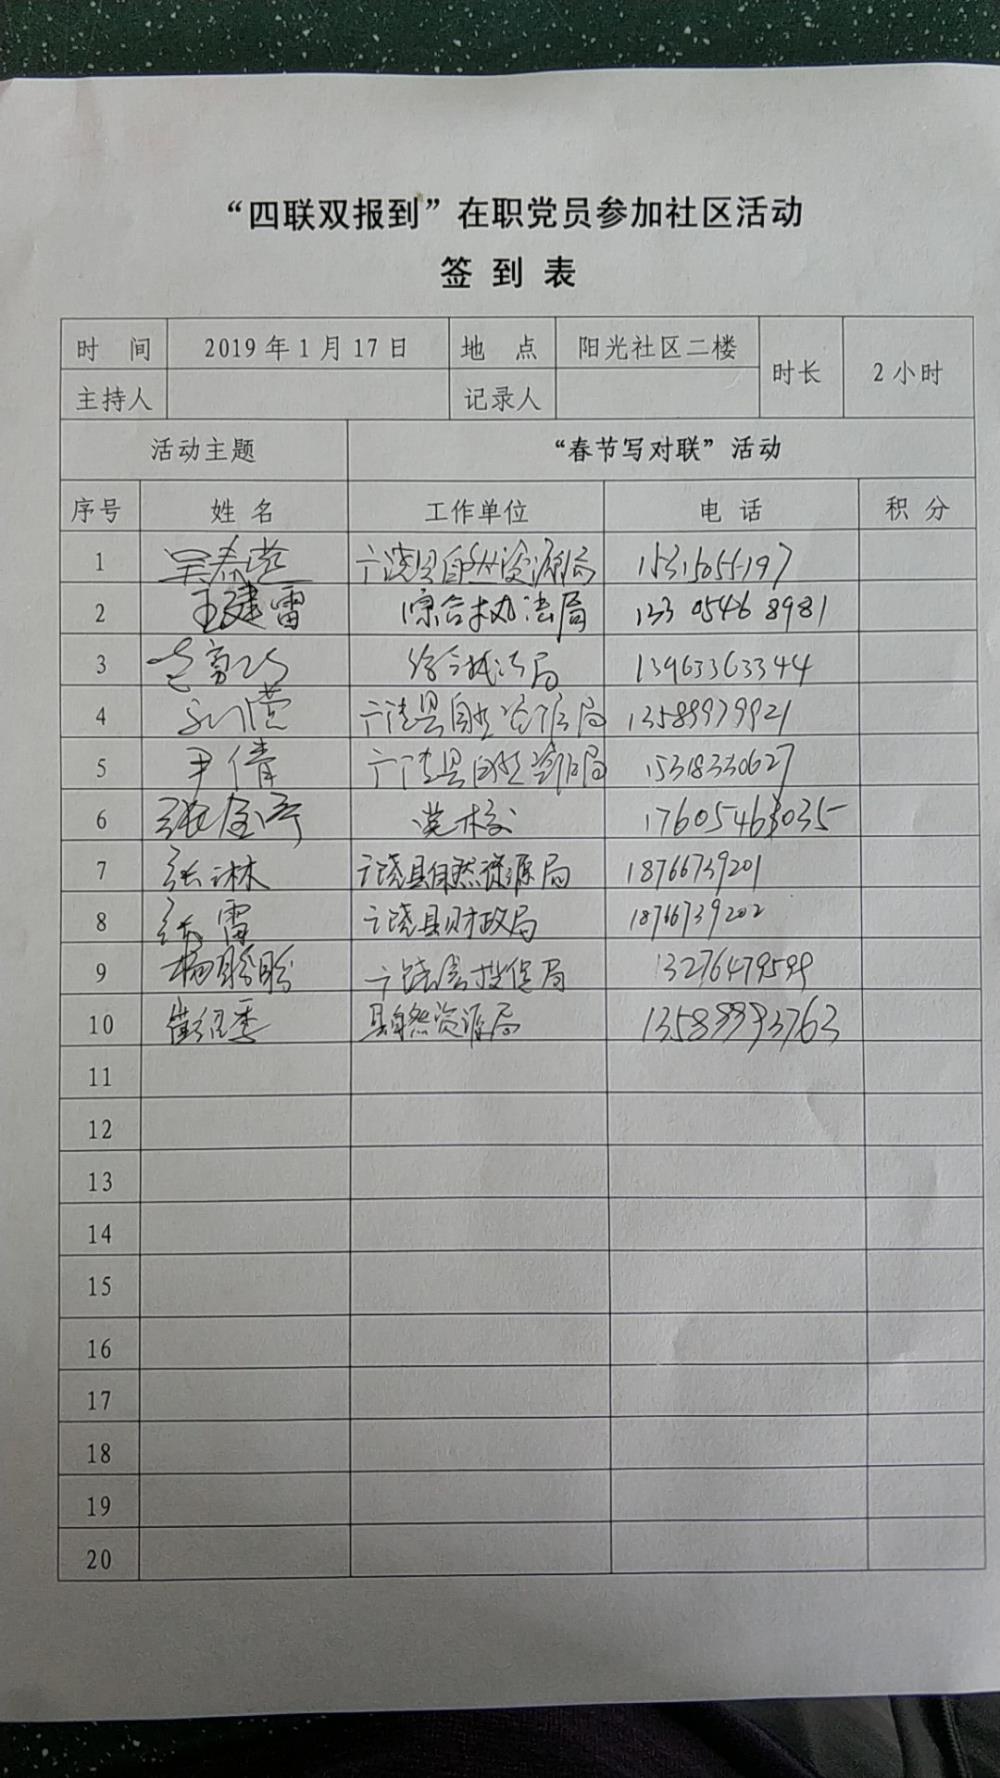 “四联双报到”在职党员参加社区活动
签 到 表
时 间 2019年1月17日 地 点 阳光社区二楼 时长 2小时
主持人 记录人
活动主题 “春节写对联”活动
序号 姓 名 工作单位 电 话 积 分
1 广饶县自然资源局
2 王建雷 综合执法局 133 0546 8981
3 综合执法局 13963363344
4 广饶县自然资源局 13589979921
5 尹倩 广饶县自然资源局 15318330627
6 党校
7 张琳 广饶县自然资源局 18766739201
8 张雷 广饶县财政局 18766739202
9 杨盼盼 局 13276479599
10 县自然资源局 13589993763
11
12
13
14
15
16
17
18
19
20